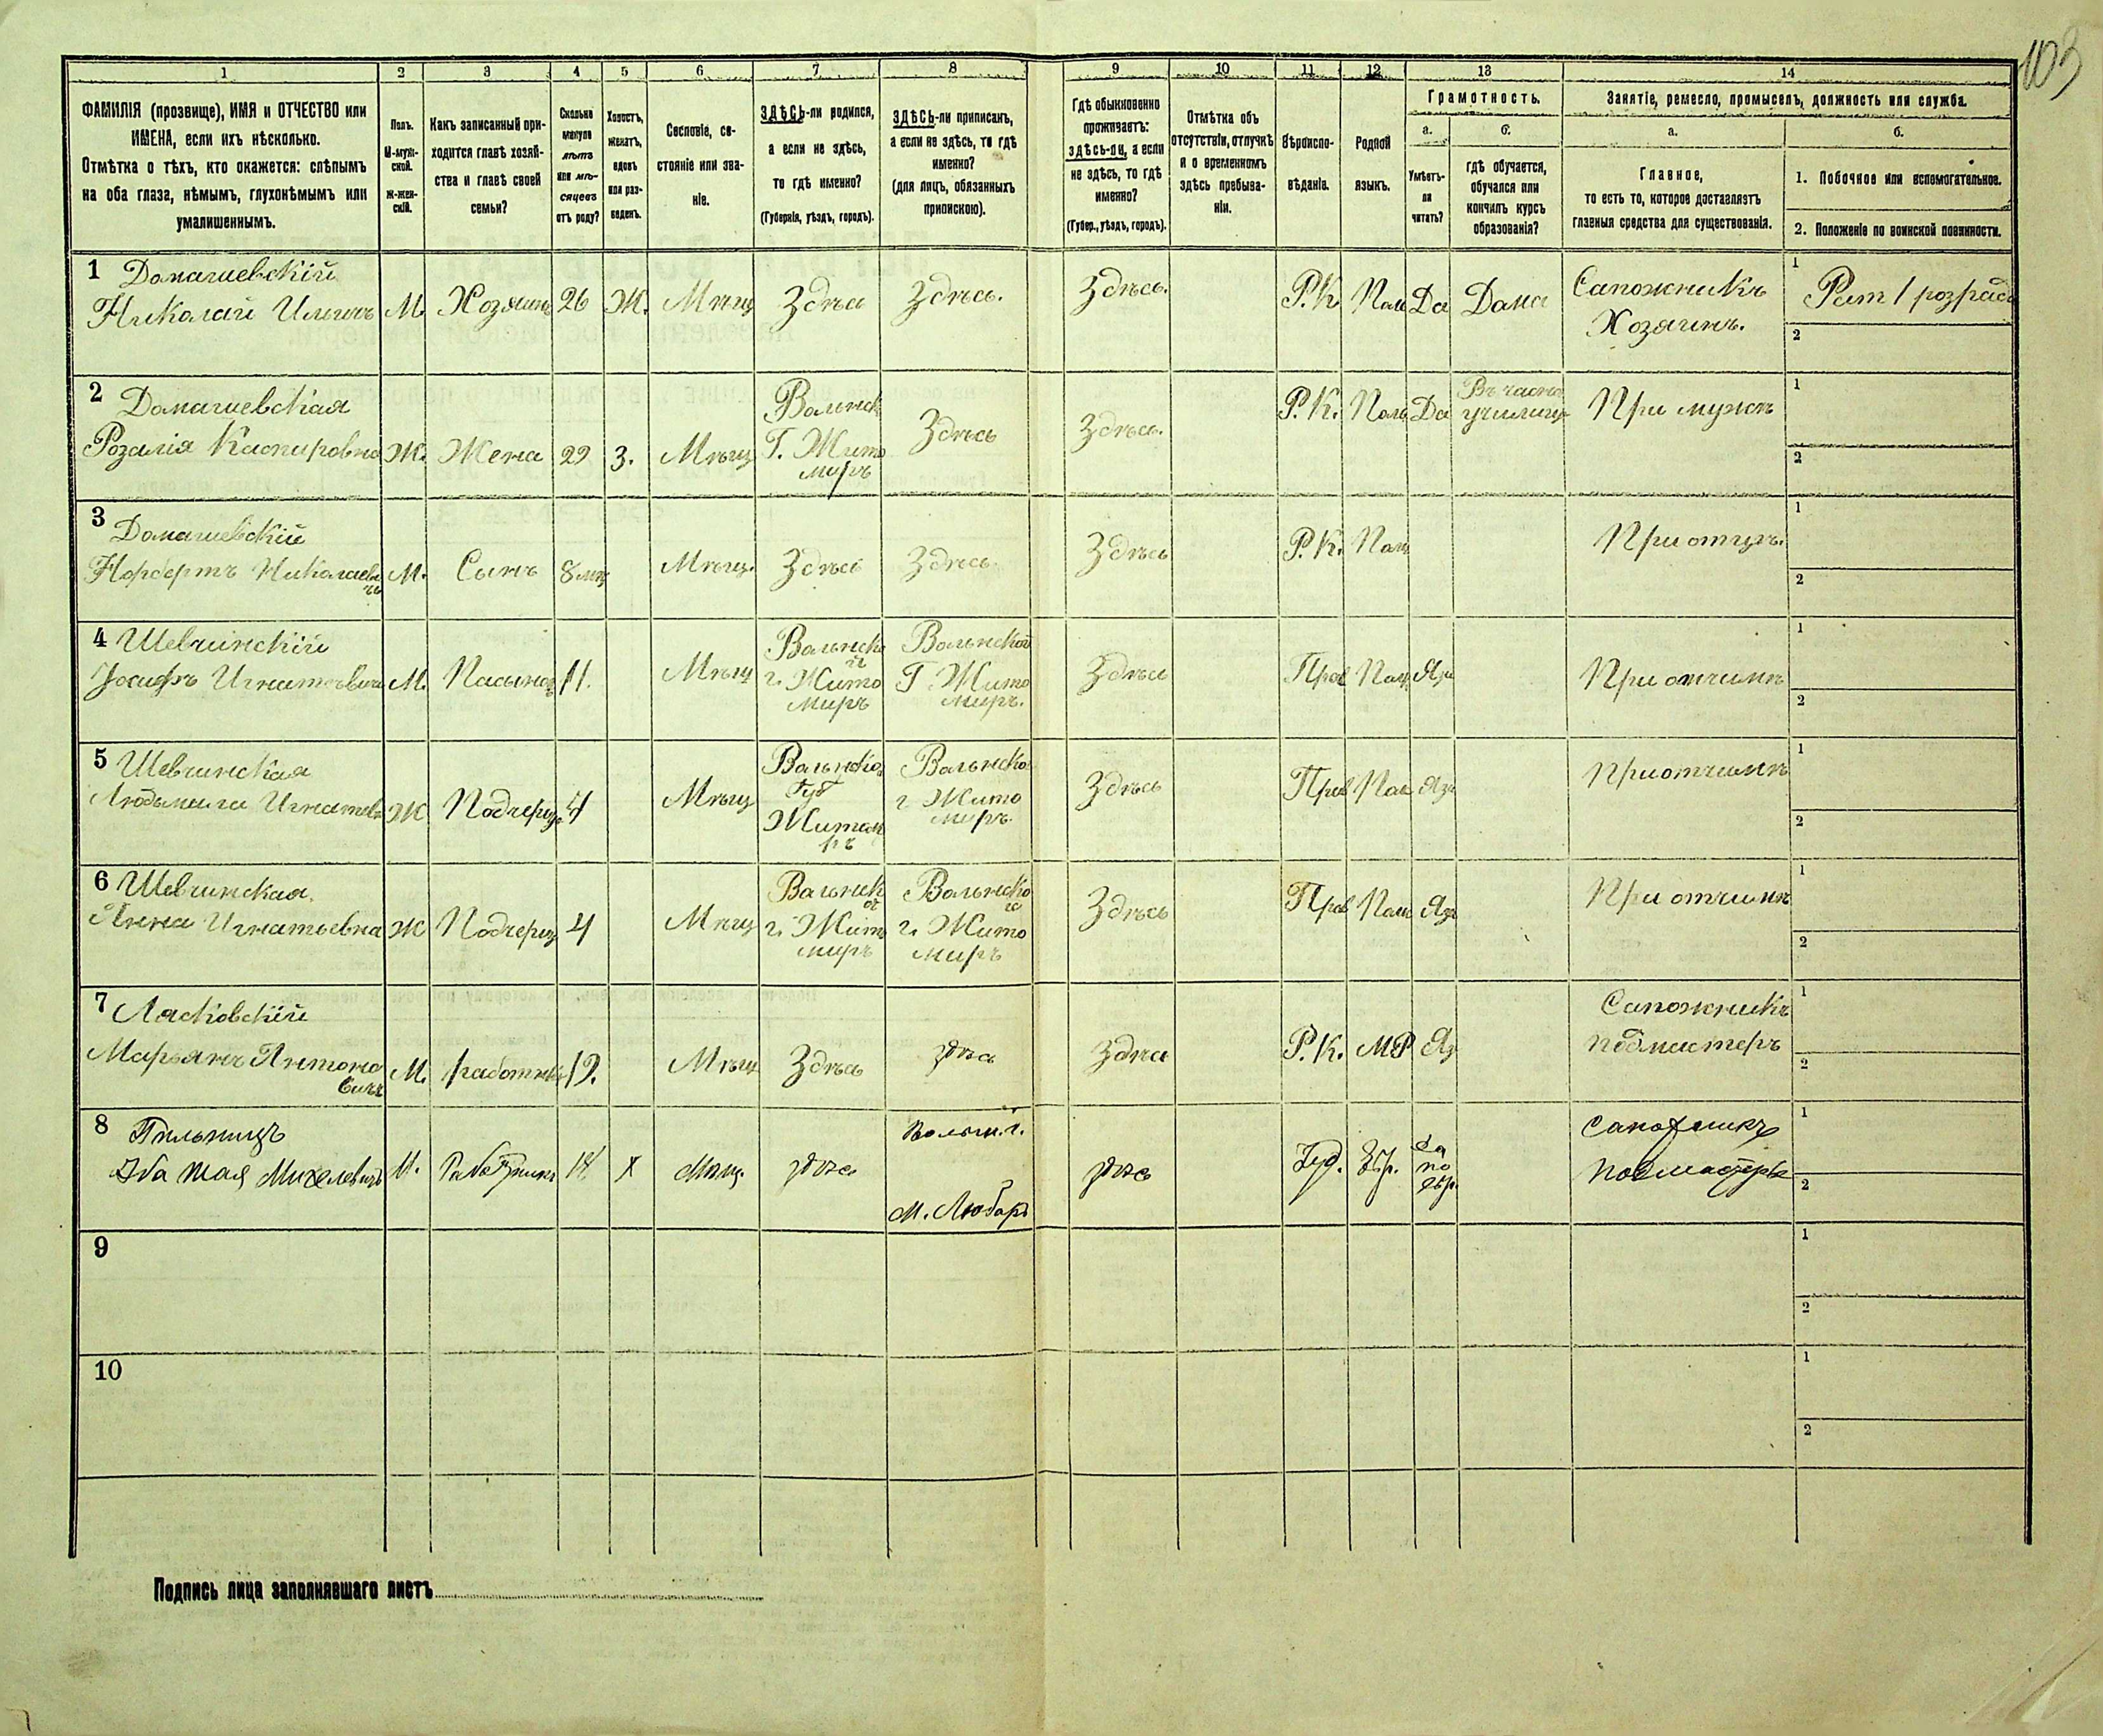 103
1 2 3 4 5 6 7 8 9 10 11 12 13 14
ФАМИЛІЯ (прозвище), ИМЯ и ОТЧЕСТВО или
ИМЕНА, если ихъ нѣсколько.
Отмѣтка о тѣхъ, кто окажется: слѣпымъ
на оба глаза, нѣмымъ, глухонѣмымъ или
умалишеннымъ.
Полъ.
М-муж-
ской.
Ж-жен-
скій.
Какъ записанный при-
ходится главѣ хозяй-
ства и главѣ своей
семьи?
Сколько
минуло
лѣтъ
или мѣ-
сяцевъ
отъ роду?
Холостъ,
женатъ,
вдовъ
или раз-
веденъ.
Сословіе, со-
стояніе или зва-
ніе.
ЗДѢСЬ-ли родился,
а если не здѣсь,
то гдѣ именно?
(Губернія, уѣздъ, городъ).
ЗДѢСЬ-ли приписанъ,
а если не здѣсь, то гдѣ
именно?
(для лицъ, обязанныхъ
припискою).
Гдѣ обыкновенно
проживаетъ:
здѣсь-ли, а если
не здѣсь, то гдѣ
именно?
(Губер., уѣздъ, городъ).
Отмѣтка объ
отсутствіи, отлучкѣ
и о временномъ
здѣсь пребыва-
ніи.
Вѣроиспо-
вѣданіе.
Родной
языкъ.
Грамотность.
а.
Умѣетъ-
ли
читать?
б.
гдѣ обучается,
обучался или
кончилъ курсъ
образованія?
Занятіе, ремесло, промыселъ, должность или служба.
а.
Главное,
то есть то, которое доставляетъ
главныя средства для существованія.
б.
1. Побочное или вспомогательное.
2. Положеніе по воинской повинности.
1 Домагиевскій
Николай М. Хозяинъ 26 Ж. Мѣщ Здѣсь Здѣсь. Здѣсь. Р.К. Поль Да Дома Сапожникъ
Хозяинъ.
1
2
2 Домагиевская
Розалія Каспировна Ж. Жена 29 З. Мѣщ Волынск
Г. Жито
миръ
Здѣсь Здѣсь. Р.К. Поль Да Въ частн
училищ При мужѣ
1
2
3 Домагиевскій
Норбертъ Николаеви
чъ
М. Сынъ 8 мц Мѣщ. Здѣсь Здѣсь. Здѣсь Р.К. Поль При отцѣ.
1
2
4 Шевчинскій
Іосифъ Игнатьевичъ М. Пасынок 11. Мѣщ Волынск
г. Жито
миръ
Волынской
Г. Жито
миръ.
Здѣсь Прав Поль При отчимѣ
1
2
5 Шевчинская
Людвига Ж Подчериц Мѣщ Волынско
Губ
Житом
ръ
Волынско
г Жито
миръ.
Здѣсь Прав Поль При отчимѣ
1
2
6 Шевчинская.
Анна Игнатьевна Ж Подчериц 4 Мѣщ Волынск
г. Жито
миръ
Волынско
г. Жито
миръ
Здѣсь Прав Поль При отчимѣ
1
2
7 Лясковскій
Марьянъ Антоно
вичъ
М. работникъ 19. Мѣщ Здѣсь здѣсь Здѣсь Р.К. Сапожникъ
подмастеръ
1
2
8 Пильпицъ
Михелевичъ М. Работникъ 18 Х Мѣщ. здѣсь Волын. г.
м. Любаръ
здѣсь Іуд. Евр. да
по
евр.
Сапожникъ
подмастеръ
1
2
9
1
2
10
1
2
Подпись лица заполнявшаго листъ